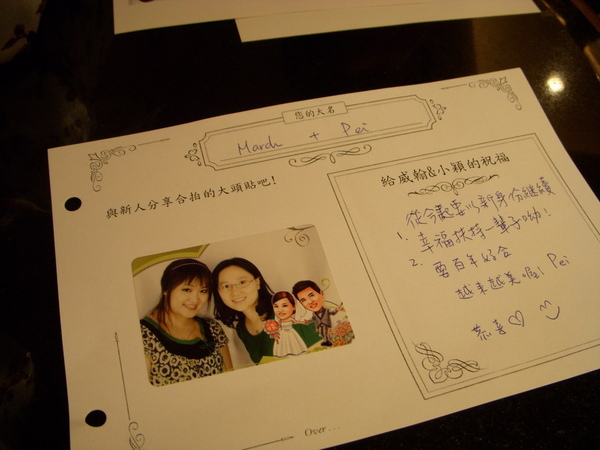 您的大名
March + Pei
與新人分享合拍的大頭貼吧!
給威翰&小穎的祝福
從今起要以新身份繼續
1. 幸福扶持一輩子呦!
2. 要百年好合
越來越美喔! Pei
恭喜♡
Over...